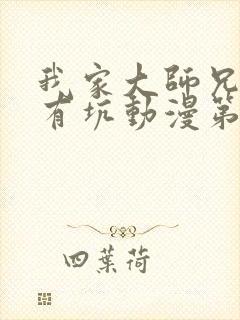 我家大師兄
有坑動漫第
四葉荷